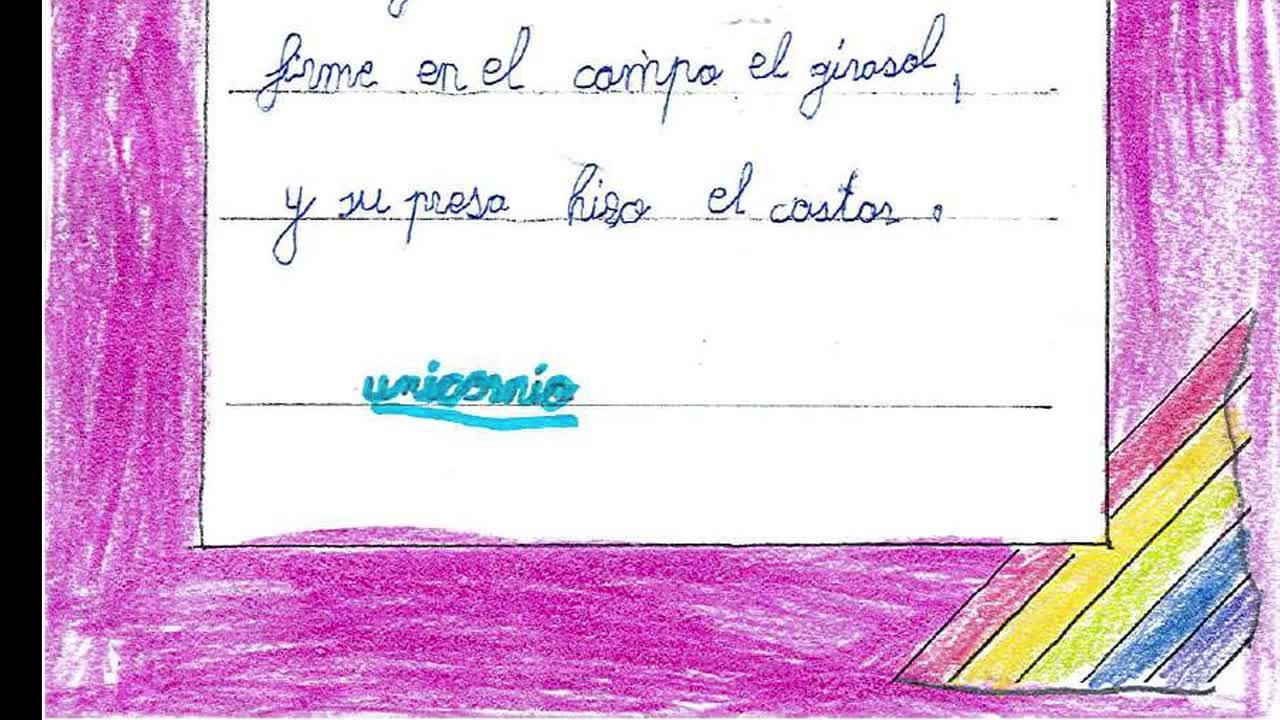 firme en el campo el girasol,
y su presa hizo el castor.
unicornio